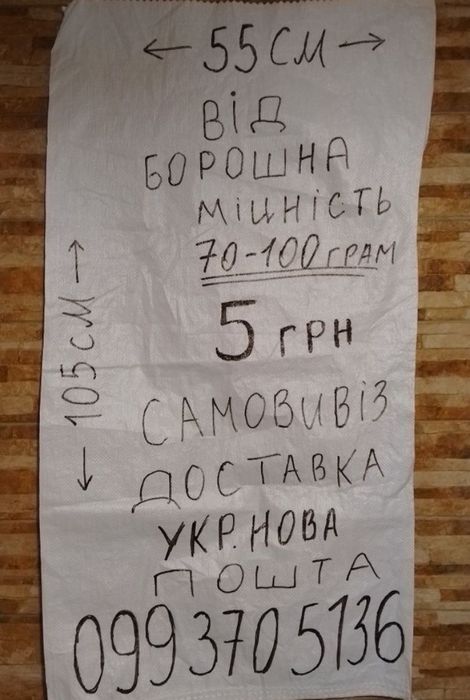 ← 55 СМ →
ВІД
БОРОШНА
МІЦНІСТЬ
70-100 ГРАМ
5 ГРН
← 105 СМ →
САМОВИВІЗ
ДОСТАВКА
УКР. НОВА
ПОШТА
099 370 5136